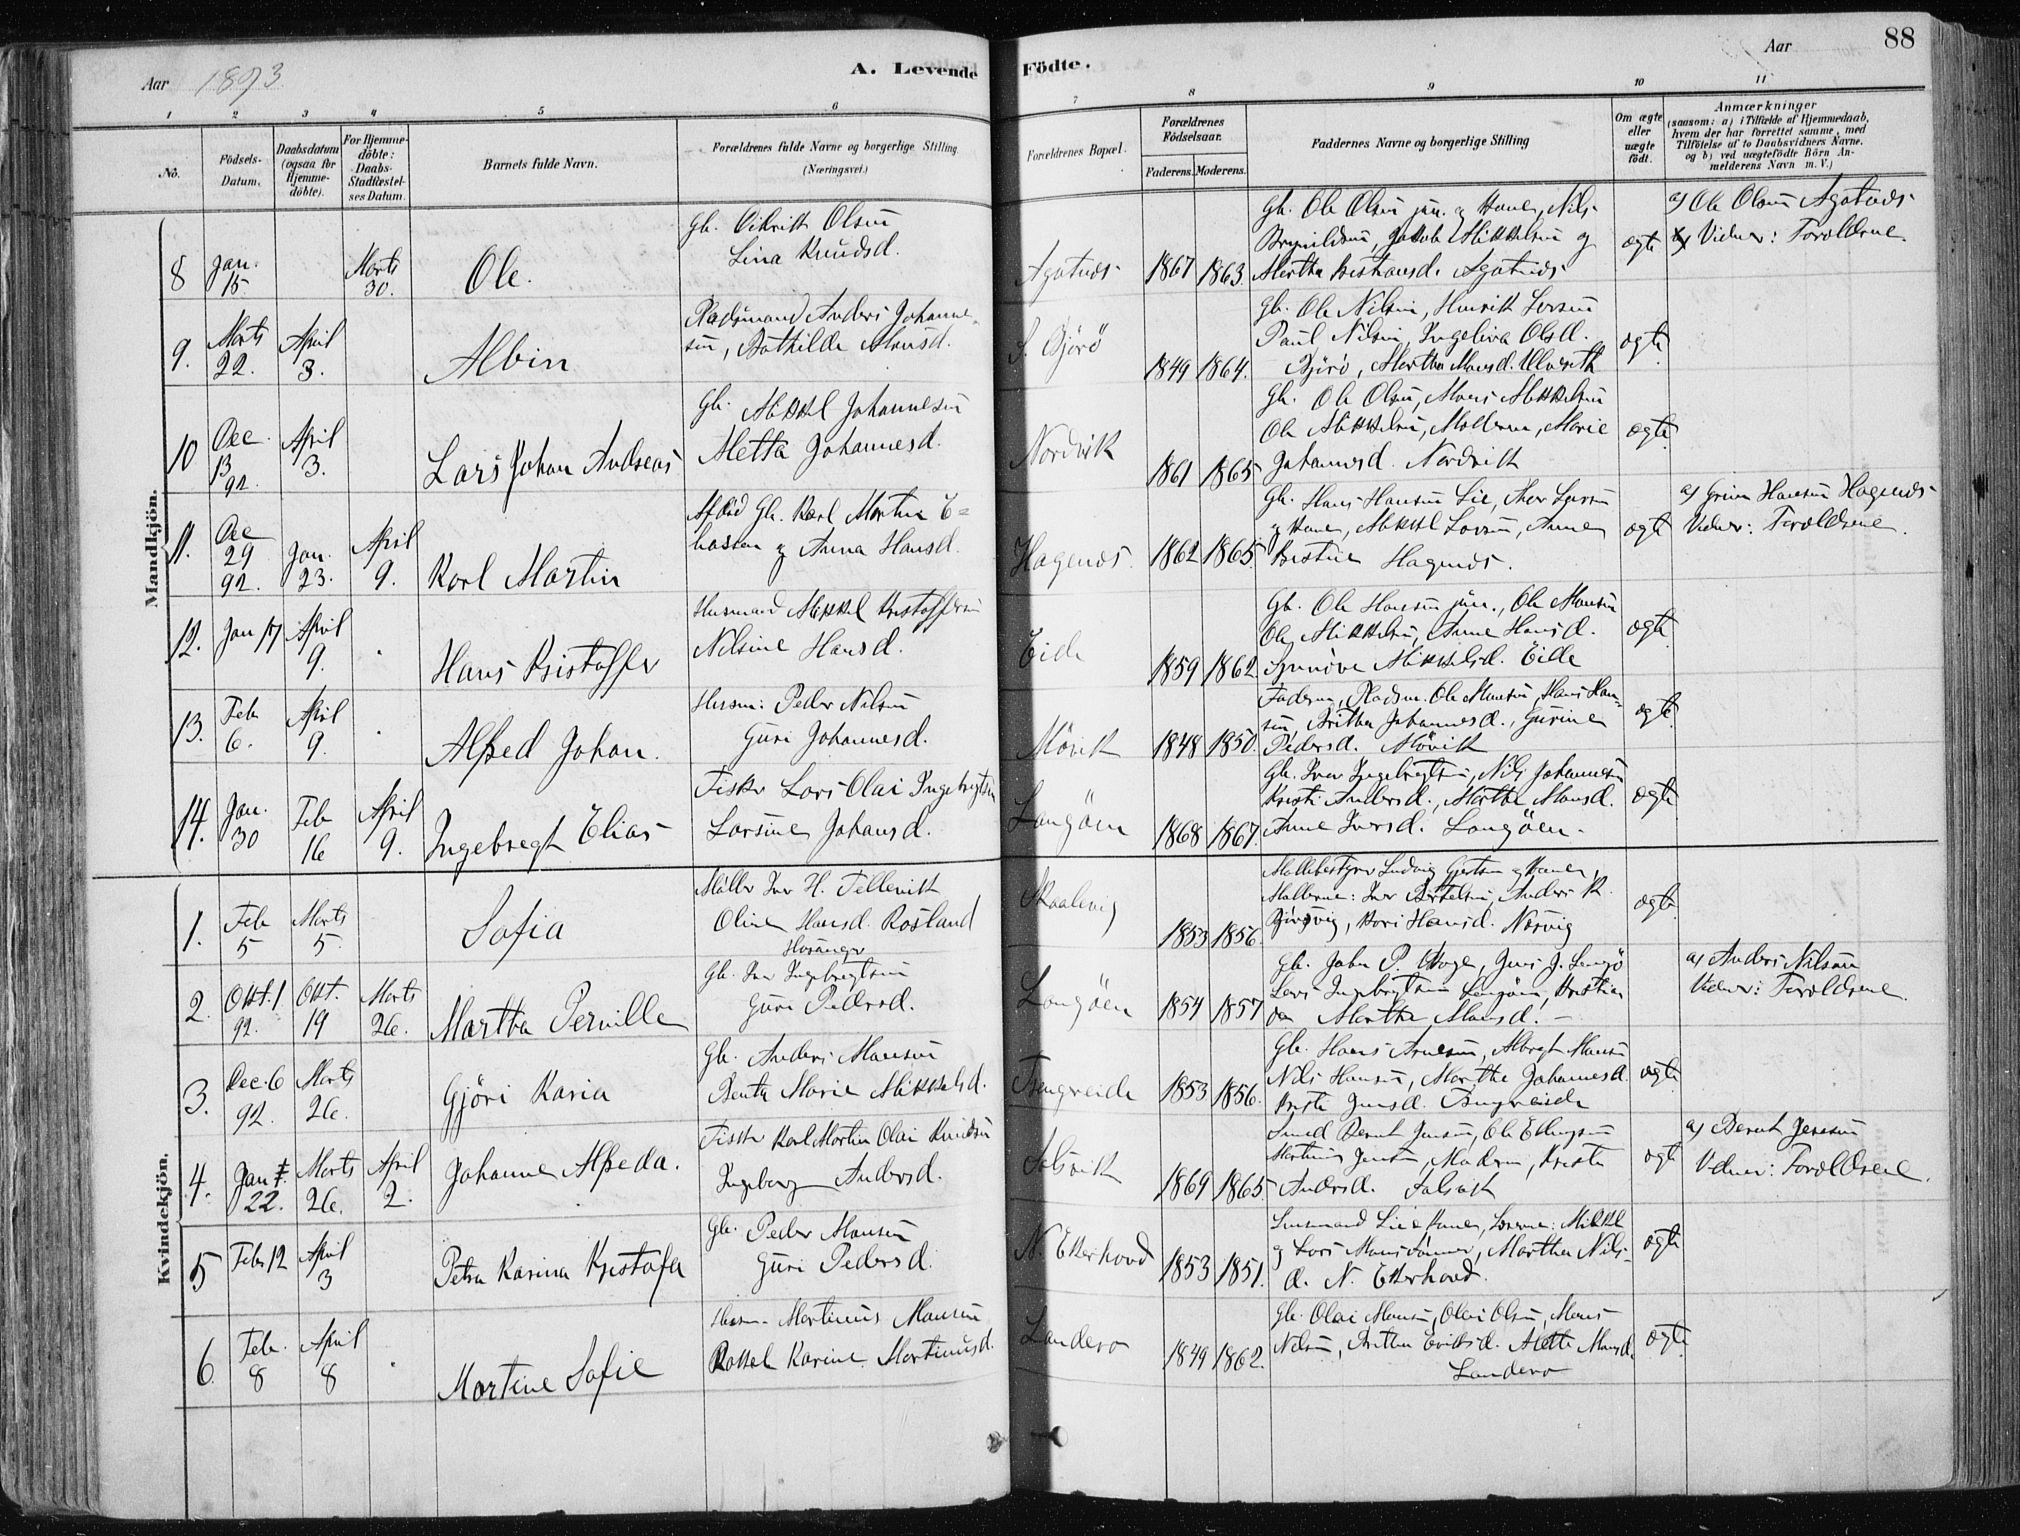 Aar 1893
A. Levende Födte.
Aar
88
1 2 3 4 5 6 7 8 9 10 11
No.
Födsels-Datum.
Daabsdatum (ogsaa for Hjemme-döbte).
For Hjemme-döbte: Daabs-Stadfæstel-ses Datum.
Barnets fulde Navn.
Forældrenes fulde Navne og borgerlige Stilling (Næringsvei.)
Forældrenes Bopæl.
Forældrenes Födselsaar.
Faderens. Moderens.
Faddernes Navne og borgerlige Stilling
Om ægte eller uægte født.
Anmærkninger
(saasom: a) i Tilfælde af Hjemmedaab,
hvem der har forrettet samme, med
Tilföielse af to Daabsvidners Navne.
og b) ved uægtefödte Börn An-
melderens Navn m. V.)
Mandkjön.
8 Jan. 15 Marts 30. Ole.
Lina Knudsd.
Agotnes 1867 1863.
Gb. Ole Olsen jun. og Kone, Nils
Brynildsen, Jakob Mikkelsen og
Martha Kristiansd. Agotnes
ægte
a) Ole Olsen Agotnes
Vidner: Forældrene.
9. Marts 22. April 3. Albin
Pladsmand Anders Johanne-
sen, Bothilde Monsd.
Björö 1849 1864.
Gb. Ole Nilsen, Henrik Larsen
Paul Nilsen, Ingeliva Olsd.
Björö, Martha Monsd.
ægte
10 Dec. 13 92. April 3. Lars Johan Andreas
Gb. Mikkel Johannesen
Metta Johannesd.
Nordvik 1861 1865
Gb. Ole Olsen, Mons Mikkelsen
Ole Mikkelsen, Moderen, Marie
Johannesd. Nordvik
ægte
11. Dec 29 92. Jan. 23. April 9. Karl Martin
Afdöd Gb. Karl Martin E-
liassen og Anna Hansd.
Hagenæs 1862 1865
Gb. Hans Hansen Lie, Larsen
og Kone, Mikkel Larsen, Anne
Kristine Hagenæs.
ægte
a) Hansen Hagenæs
Vidner: Forældrene.
12. Jan 17 April 9. Hans Kristoffer
Husmand Mikkel Kristoffersen
Nilsine Hansd.
Eide 1859 1862.
Gb. Ole Hansen jun., Ole Monsen
Ole Mikkelsen, Anne Hansd.
Synnöve Mikkelsd. Eide
ægte
13. Feb 6. April 9. Alfred Johan.
Husm: Peder Nilsen
Guri Johannesd.
Mövik 1848 1850.
Faderen, Pladsm. Ole Monsen, Hans Han-
sen, Britha Johannesd., Gurine
Pedersd. Mövik
ægte
14. Jan. 30 Feb 16 April 9. Ingebregt Elias
Fisker Lars Olai Ingebrigtsen
Larsine Johansd.
Langöen 1868 1867.
Gb. Iver Ingebrigtsen, Nils Johannesen
Kristi Andersd., Martha Monsd.
Anne Iversd. Langöen.
ægte
Kvindekjön.
1. Feb 5 Marts 5. Sofia
Möller Iver H. Tellevik
Oline Hansd. Rosland
Hosanger
Skaalevig 1853 1856.
Möllebestyrer Ludvig Gjertsen og Kone,
Anders K.
Hansd.
ægte
2. Okt. 1 92. Okt. 19 Marts 26. Martha Pernille
Gb. Iver Ingebregtsen
Guri Pedersd.
Langöen 1854 1857
Lars Ingebrigtsen Langöen, Kristian
Martha Monsd.
a) Anders Nilsen
Vidner: Forældrene.
3. Dec. 6 92. Marts 26. Gjöri Karia
Gb. Anders Monsen
Bente Marie Mikkelsd.
1853 1856.
Gb. Hans Arnesen, Albregt Monsen
Nils Hansen, Martha Johannesd.
ægte
4. Jan. 22. Marts 26. April 2. Johanne Alfreda.
Fisker Karl Martin Olai Knudsen
Ingeborg Andersd.
Solsvik 1869 1865.
Smed Bernt Jensen, Ole Ellingsen
Martinus Jensen, Moderen, Kristi
Andersd. Solsvik
ægte
a) Bernt Jensen
Vidner: Forældrene.
5 Feb. 12 April 3 Petra Karina Kristofa
Gb. Peder Monsen
Guri Pedersd.
N. Ekerhovd 1853 1851.
Lensmand Lie & Kone, Lærerne: Mikkel
og Lars Mons sönner, Martha Nils-
d. N. Ekerhovd.
ægte
6. Feb. 8 April 8 Martine Sofie
Husm. Martinus Monsen
Rakel Karine Martinusd.
Landero 1849 1862.
Gb. Olai Monsen, Olai Olsen, Mons
Nilsen, Britha Eriksd. Mette Monsd.
Landero
ægte